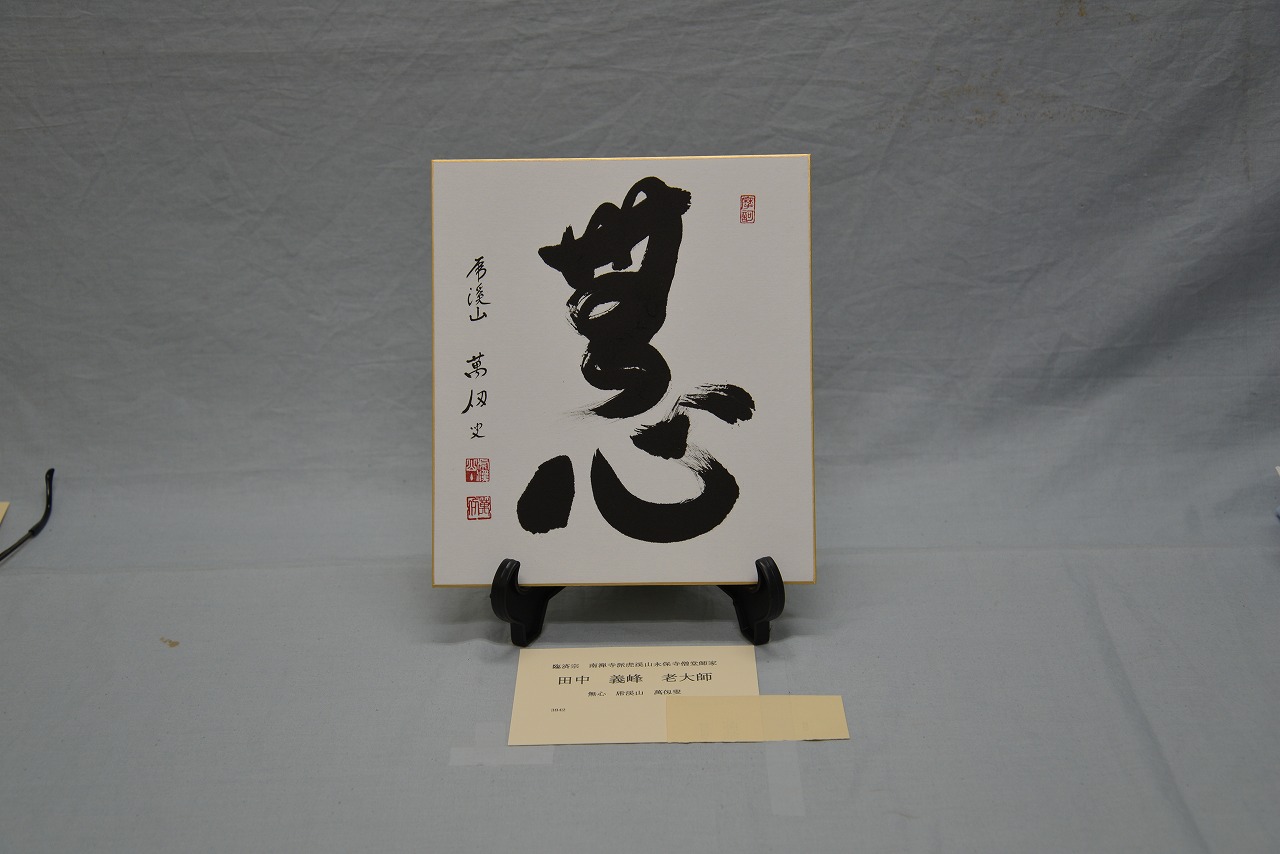 摩訶
無心
虎溪山　萬仭叟
臨済宗　南禅寺派虎渓山永保寺僧堂師家
田中　義峰　老大師
無心　虎渓山　萬仭叟